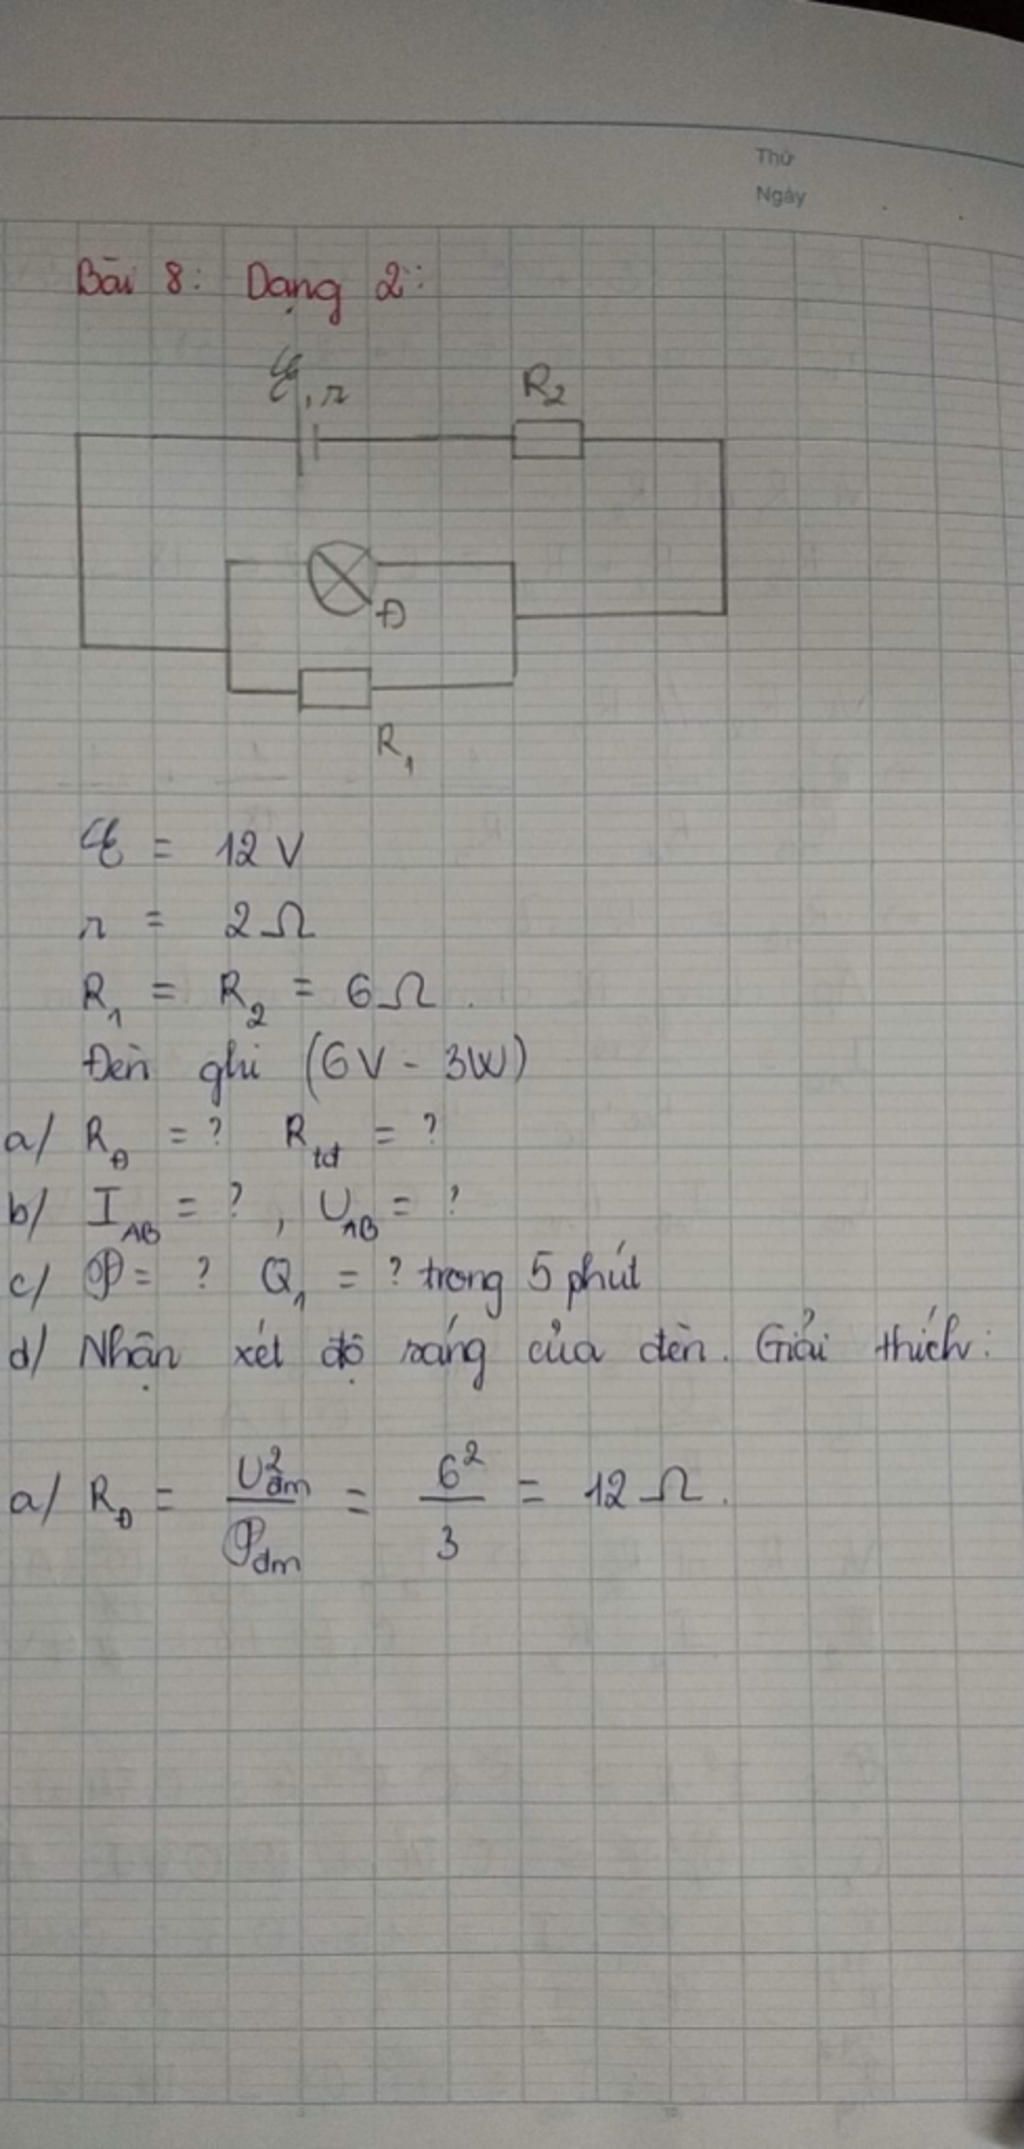 Thứ
Ngày
Bài 8: Dạng 2:
ℰ, r
R2
Đ
R1
ℰ = 12 V
r = 2 Ω
R1 = R2 = 6 Ω.
Đèn ghi (6V - 3W)
a/ RĐ = ? Rtđ = ?
b/ IAB = ?, UAB = ?
c/ P = ? Q1 = ? trong 5 phút
d/ Nhận xét độ sáng của đèn. Giải thích:
a/ RĐ = U²đm / Pđm = 6² / 3 = 12 Ω.